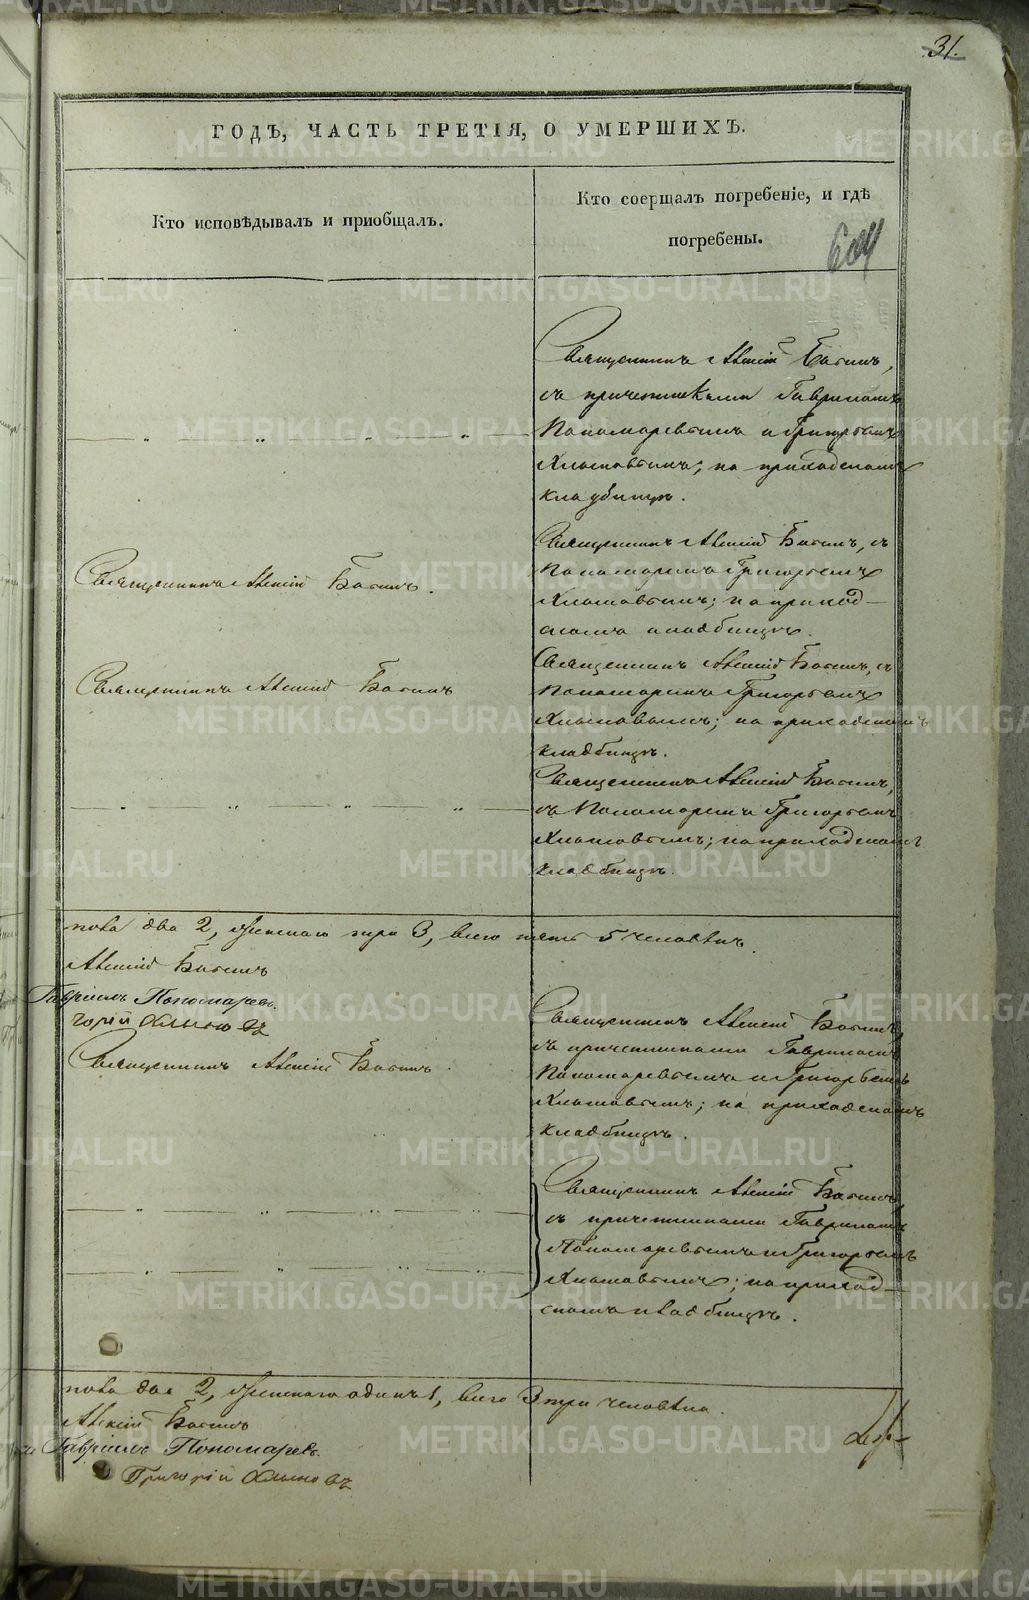 31.
ГОДЪ, ЧАСТЬ ТРЕТІЯ, О УМЕРШИХЪ.
Кто исповѣдывалъ и пріобщалъ.
Кто соершалъ погребеніе, и гдѣ
погребены.
604
Священникъ Алексій Басинъ,
съ причетниками Гавриломъ
Пономаревымъ и Григорьемъ
Хлыновымъ; на приходскомъ
кладбищѣ.
Священникъ Алексій Басинъ.
Священникъ Алексій Басинъ, съ
Пономаремъ Григорьемъ
Хлыновымъ; на приход—
скомъ кладбищѣ.
Священникъ Алексій Басинъ
Священникъ Алексій Басинъ, съ
Пономаремъ Григорьемъ
Хлыновымъ; на приходскомъ
кладбищѣ.
Священникъ Алексій Басинъ,
съ Пономаремъ Григорьемъ
Хлыновымъ; на приходскомъ
кладбищѣ.
пола два 2, женскаго три 3, всего пять 5 человѣкъ.
Алексій Басинъ
Гавріилъ Пономаревъ.
горій Хлыновъ
Священникъ Алексій Басинъ.
Священникъ Алексій Басинъ,
съ причетниками Гавриломъ
Пономаревымъ и Григорьемъ
Хлыновымъ; на приходскомъ
кладбищѣ.
Священникъ Алексій Басинъ,
съ причетниками Гавриломъ
Пономаревымъ и Григорьемъ
Хлыновымъ; на приход—
скомъ кладбищѣ.
пола два 2, женскаго одинъ 1, всего 3 три человѣка.
Алексій Басинъ
Гавріилъ Пономаревъ.
Григорій Хлыновъ
METRIKI.GASO-URAL.RU